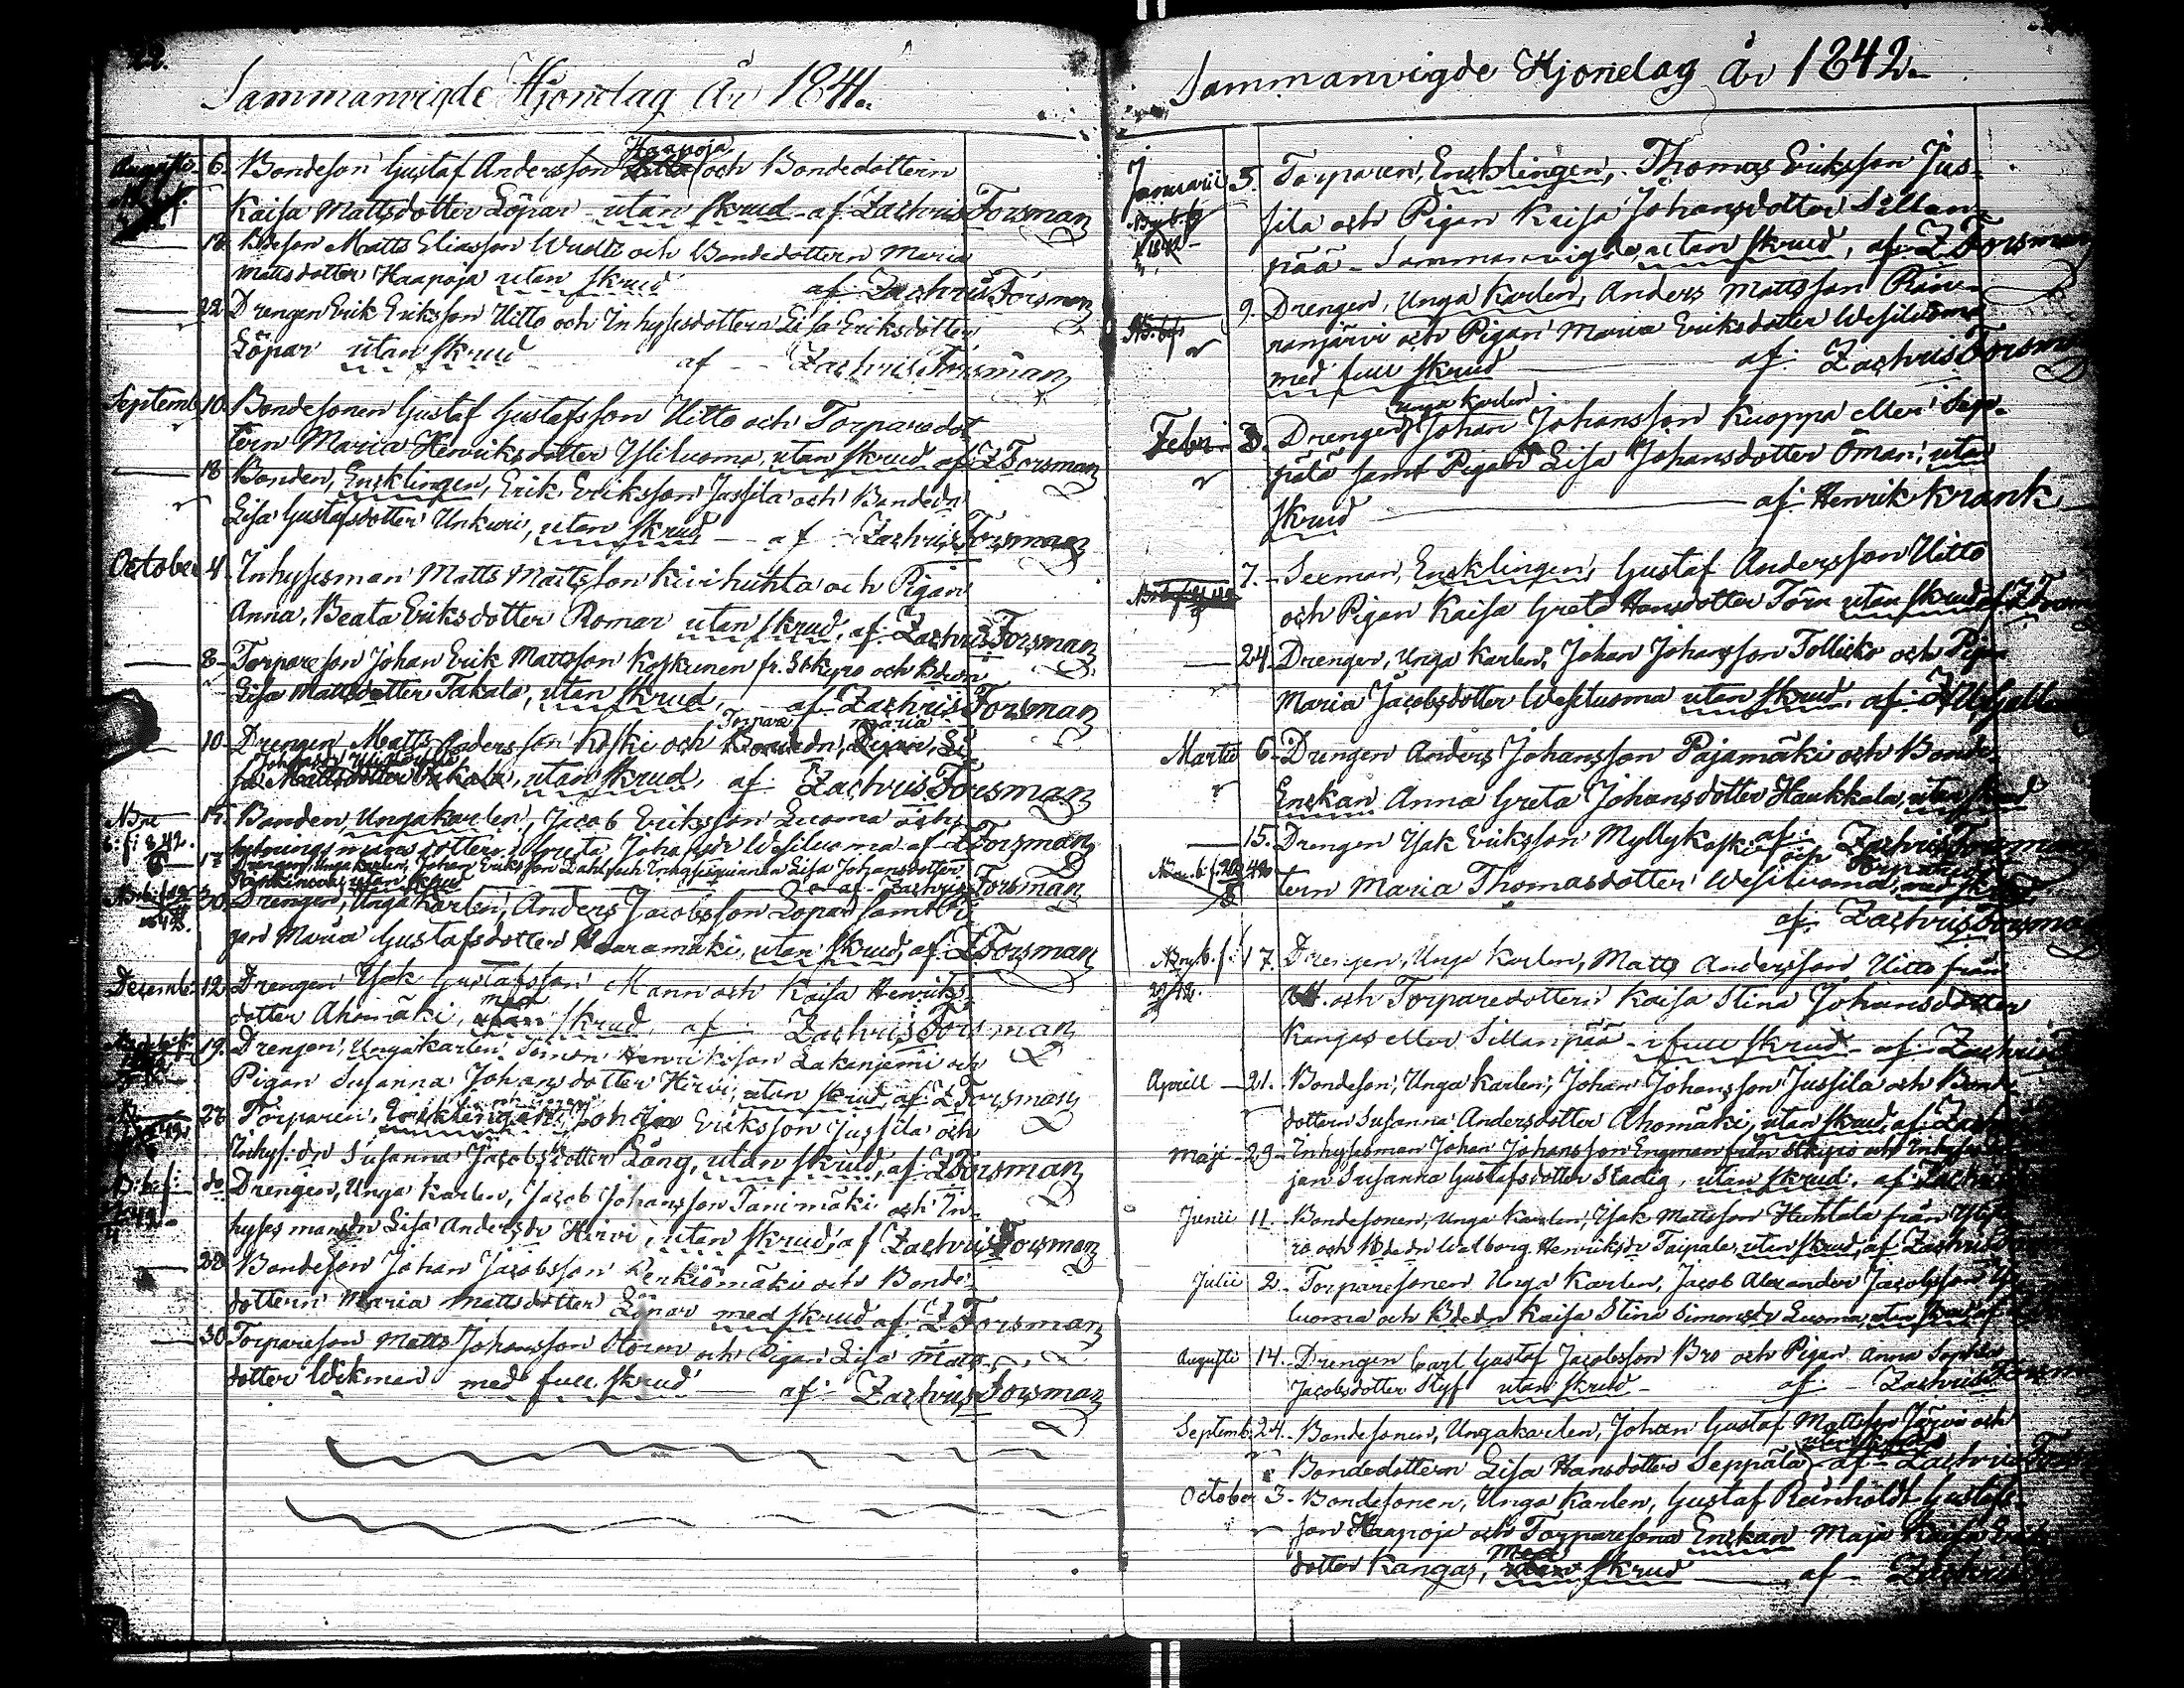 22.
Sammanvigde Hjonelag År 1841.
Augusti 6. Bondeson Gustaf Andersson Haapoja och Bondedottern
Kaisa Mattsdotter Löpar utan skrud af Zachris Forsman
Bdeson Matts Eliasson Wudti och Bondedottern Maria
Mattsdotter Haapoja utan skrud af Zachris Forsman
22 Drengen Erik Eriksson Uitto och Inhysesdottern Lisa Eriksdotter
Löpar utan skrud af Zachris Forsman
Septemb. 10. Bondesonen Gustaf Gustafsson Uitto och Torparedot
tern Maria Henriksdotter Yliluoma, utan skrud af Z Forsman
18 Bonden, Encklingen, Erik Eriksson Jussila och Bondedr
Lisa Gustafsdotter Unkuri, utan skrud af Zachris Forsman
October 4. Inhysesman Matts Mattsson Kivihuhta och Pigan
Anna Beata Eriksdotter Romar utan skrud, af Zachris Forsman
8 Torpareson Johan Erik Mattsson Koskunen fr. Storkyro och
Lisa Mattsdotter Takala, utan skrud, af Zachris Forsman
10. Drengen Matts Andersson Koski och Torpare Maria
utan skrud, af Zachris Forsman
Bonden, Unga karlen, Jacob Eriksson Luoma och
dotter Greta Johansdr Wesiluoma af Z Forsman
Drengen, Unga karlen, Johan Eriksson Dahl och Inhysesqvinnan Lisa Johansdotter
utan skrud af Zachris Forsman
30. Drengen, Unga Karlen, Anders Jacobsson Löpar samt Pi
gan Maria Gustafsdotter Waaramäki, utan skrud, af Z Forsman
Decemb. 12. Drengen Isak Gustafsson Mann och Kaisa Henriks
dotter Ahomäki, med skrud, af Zachris Forsman
19. Drengen, Unga karlen, Simon Henriksson Lakaniemi och
Pigan Susanna Johansdotter Hirvi, utan skrud, af Z Forsman
27 Torparen, Johan Eriksson Jussila och
Inhys: dr Susanna Jacobsdotter Lång, utan skrud, af Z Forsman
do Drengen, Unga karlen, Jacob Johansson Tanimäki och In-
hysesmansdr Lisa Andersdr Hirvi, utan skrud, af Zachris Forsman
Bondeson Johan Jacobsson Perkiömäki och Bonde
dottern Maria Mattsdotter Löpar med skrud af Z Forsman
30 Torpareson Matts Johansson Storm och Pigan Lisa Matts-
dotter Wikman med full skrud af Zachris Forsman
Sammanvigde Hjonelag År 1842.
Januarii 5. Torparen, Encklingen, Thomas Eriksson Jus-
sila och Pigan Kaisa Johansdotter Sillan-
pää Sammanvigde utan skrud, af Z Forsman
9. Drengen, Unga Karlen, Anders Mattsson
nanjärvi och Pigan Maria Eriksdotter Wesiluoma
med full skrud af Zachris Forsman
Febr. 3. Drengen, unga karlen Johan Johansson Kuoppa eller Sep-
pälä samt Pigan Lisa Johansdotter Öman, utan
skrud af Henrik Krank
7. Seeman, Encklingen, Gustaf Andersson Uitto
och Pigan Kaisa Greta Hansdotter Törn utan skrud af Z Forsman
24. Drengen, Unga karlen, Johan Johansson Tollikko och Pigan
Maria Jacobsdotter Wesiluoma utan skrud, af
Martii 6. Drengen Anders Johansson Pajamäki och Bonde-
Enckan Anna Greta Johansdotter Haukkala, utan skrud
af Zachris Forsman
15. Drengen Isak Eriksson Myllykoski och Torparedot
tern Maria Thomasdotter Wesiluoma, med skrud
af Zachris Forsman
17. Drengen, Unga Karlen, Matts Andersson Uitto från
och Torparedottern Kaisa Stina Johansdotter
Kangas eller Sillanpää i full skrud af Zachris
Aprill 21. Bondeson, Unga karlen, Johan Johansson Jussila och Bonde
dottern Susanna Andersdotter Ahomäki, utan skrud, af Zachris
Maji 29. Inhysesman Johan Johansson Engman från Storkyro och Inhyses
Susanna Gustafsdotter Stadig, utan skrud, af Zachris
Junii 11. Bondesonen, Unga karlen, Isak Mattsson Huhtala från
ro och Bdedr Walborg Henriksdr Taipale, utan skrud, af Zachris
Julii 2. Torparesonen Unga Karlen, Jacob Alexander Jacobsson
luoma och Bdedr Kaisa Stina Simonsdr Luoma, utan skrud af
Augusti 14. Drengen Carl Gustaf Jacobsson Bro och Pigan Anna Sophia
Jacobsdotter Styf utan skrud af Zachris Forsman
Septemb. 24. Bondesonen, Unga karlen, Johan Gustaf Mattsson Järvi och
Bondedottern Lisa Hansdotter Seppälä utan skrud af Zachris Forsman
October 3. Bondesonen, Unga Karlen, Gustaf Reinholdt Gustafs
son Haapoja och Torparesons Enckan Maja Kaisa
dotter Kangas, med skrud af Zachris